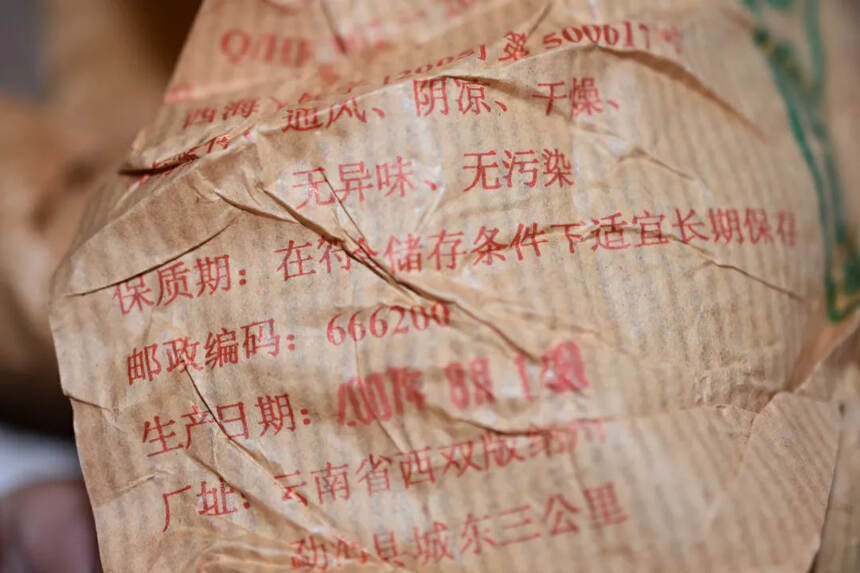 通风、阴凉、干燥、
无异味、无污染
保质期：在符合储存条件下适宜长期保存
邮政编码：666200
生产日期：2007年 8月
厂址：云南省西双版纳州
勐海县城东三公里